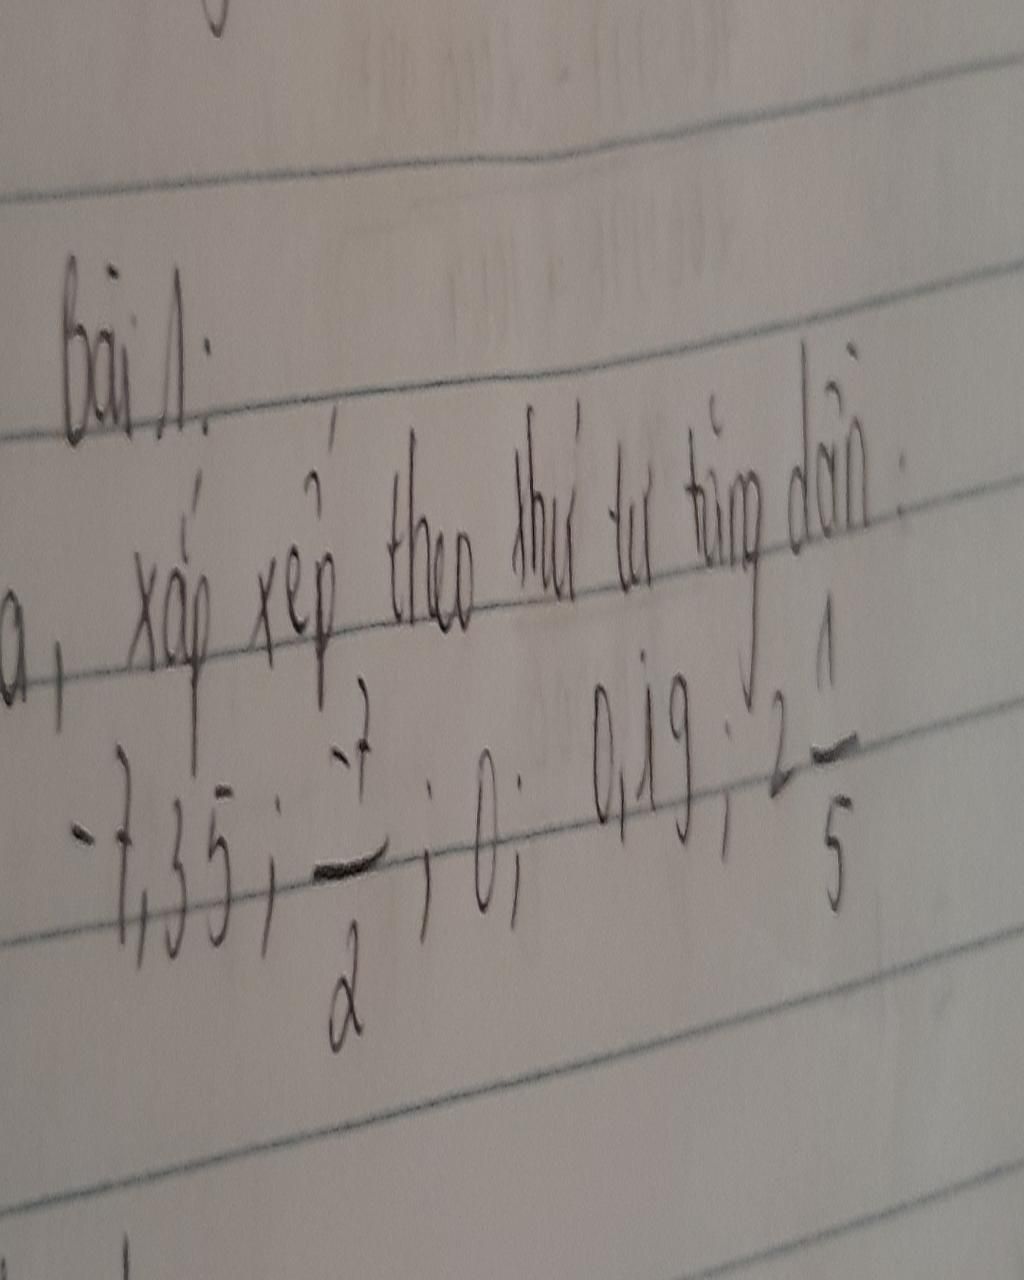 bài 1:
a, xắp xếp theo thứ tự tăng dần.
-7,35; -7/2; 0; 0,19; 2 1/5